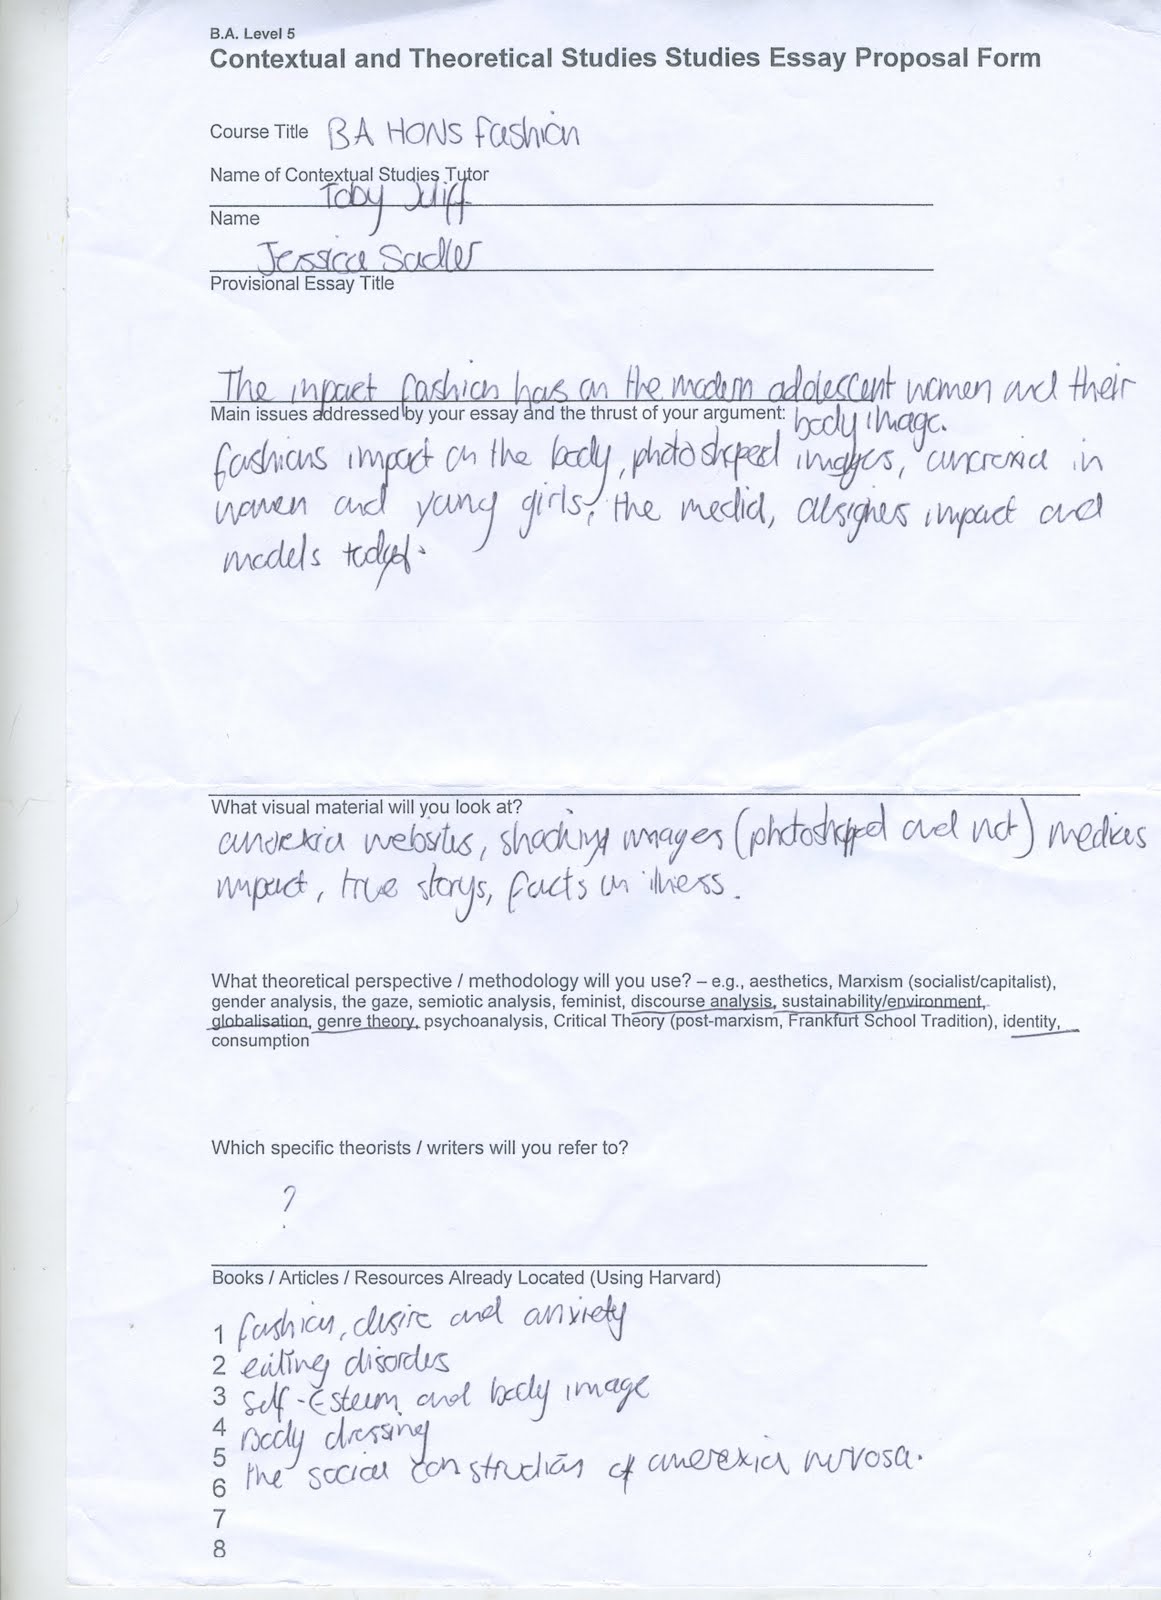 B.A. Level 5
Contextual and Theoretical Studies Studies Essay Proposal Form
Course Title BA HONS fashion
Name of Contextual Studies Tutor
Toby Juliff
Name
Jessica Sadler
Provisional Essay Title
The inpact fashion has on the modern adolescent women and their
Main issues addressed by your essay and the thrust of your argument: body image.
fashions impact on the body, photoshoped images, anorexia in
women and young girls, the media, designers impact and
models today.
What visual material will you look at?
anorexia websites, shocking images (photoshopped and not) medias
impact, true storys, facts on illness.
What theoretical perspective / methodology will you use? – e.g., aesthetics, Marxism (socialist/capitalist),
gender analysis, the gaze, semiotic analysis, feminist, discourse analysis, sustainability/environment,
globalisation, genre theory, psychoanalysis, Critical Theory (post-marxism, Frankfurt School Tradition), identity,
consumption
Which specific theorists / writers will you refer to?
?
Books / Articles / Resources Already Located (Using Harvard)
1 fashion, desire and anxiety
2 eating disorders
3 Self-Esteem and body image
4 Body dressing
5 the social construction of anorexia nervosa.
6
7
8